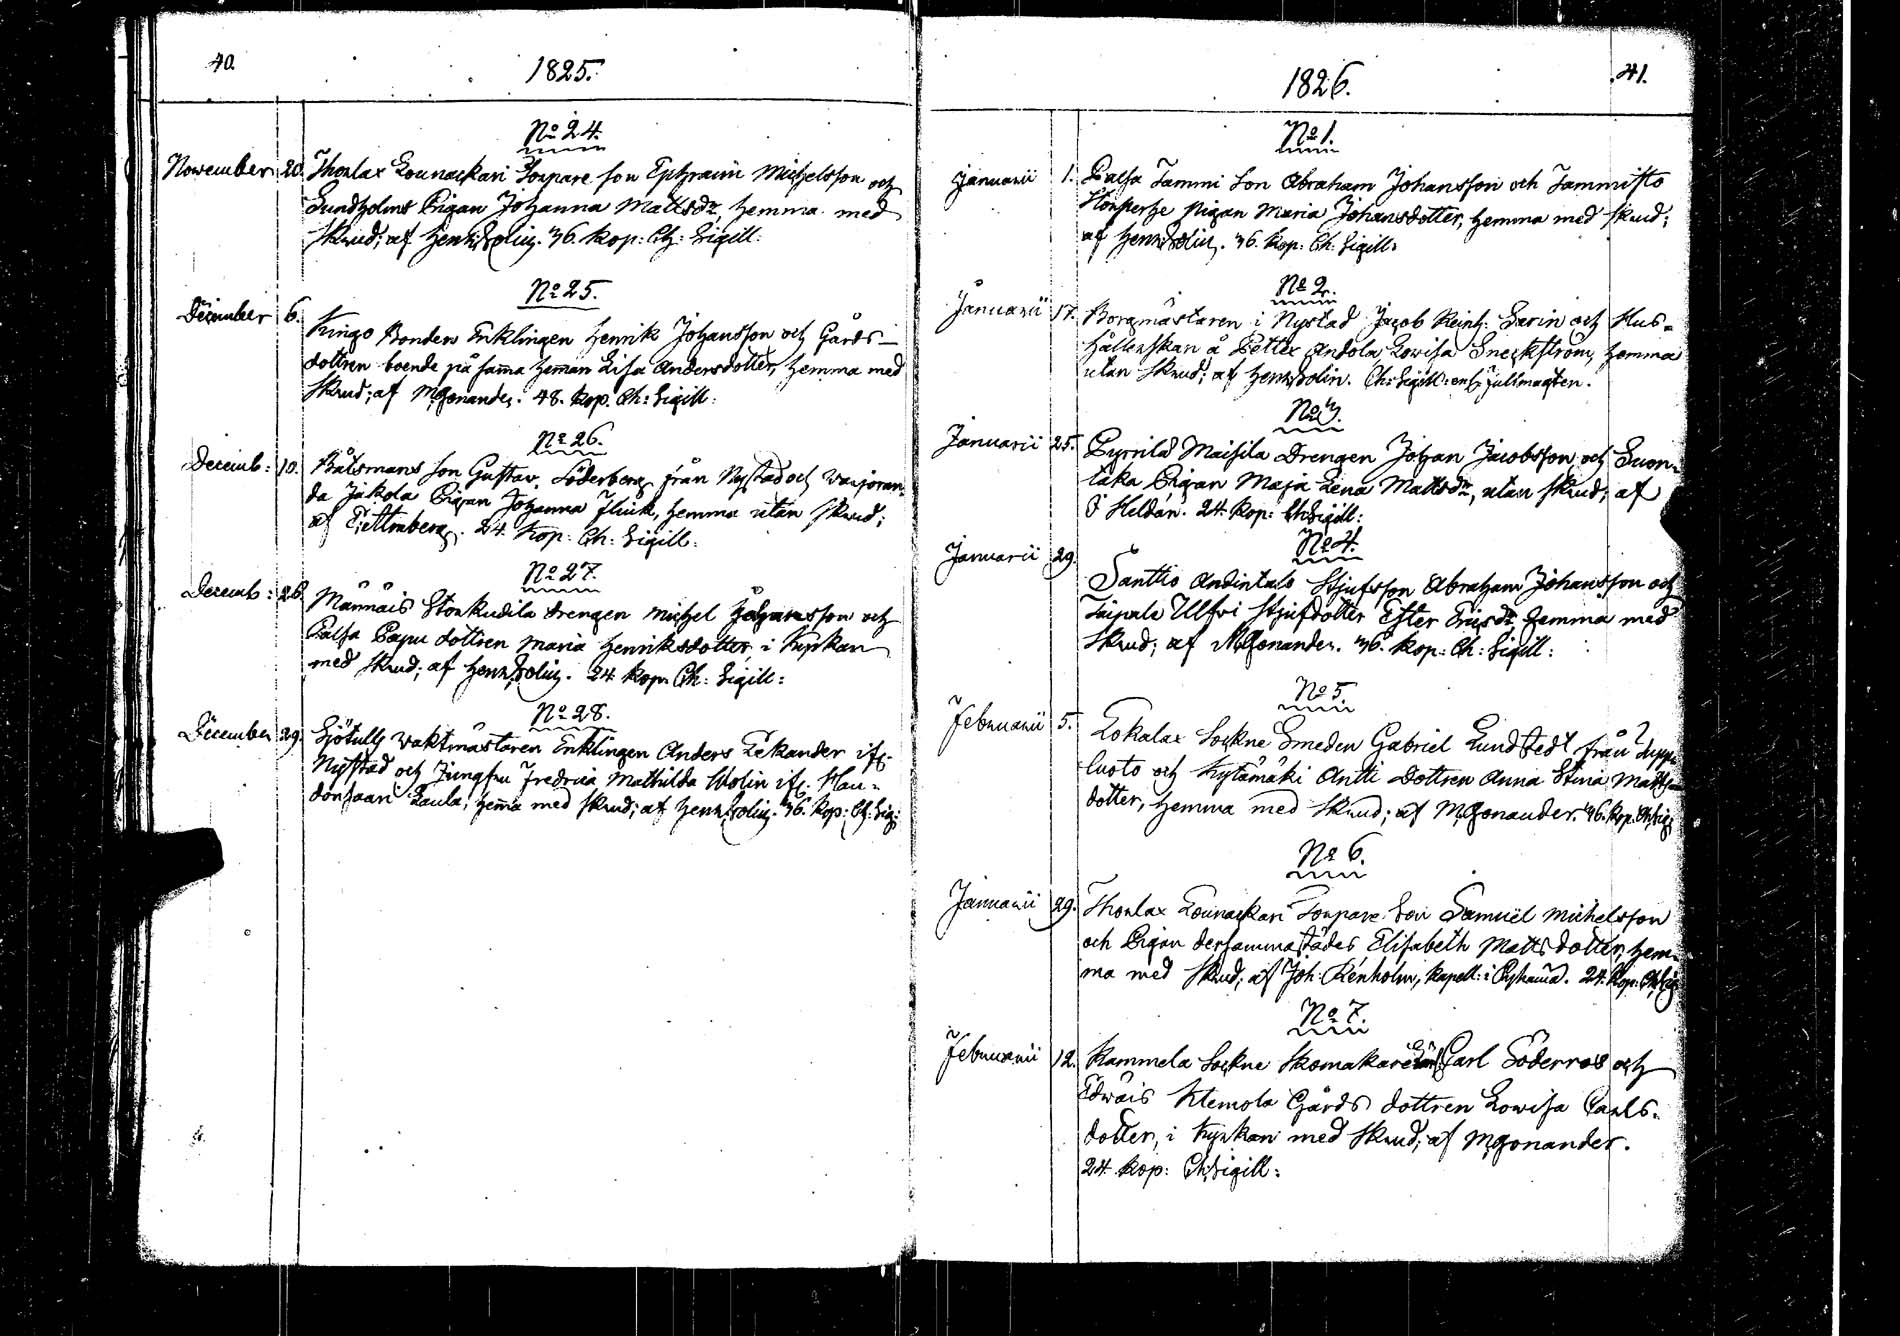 40.
1825.
No 24.
November 20. Thorlax Lounackari Torpare son Ephraim Michelsson och
Sundholms Pigan Johanna Mattsdr, hemma med
skrud; af Henr: Polin. 36. kop: Ch: Sigill:
No 25.
December 6. Kingo Bonden Enklingen Henrik Johansson och Gårds-
dottren boende på samma hemman Lisa Andersdotter, hemma med
skrud; af M. Gonander. 48. kop. Ch: Sigill:
No 26.
Decemb: 10. Båtsmans son Gustav Söderberg från Nystad och Varjoran-
da Jakola Pigan Johanna Flink, hemma utan skrud;
af 24. kop: Ch: Sigill:
No 27.
Decemb: 26. Männäis Storkudila drengen Michel Johansson och
Palsa Papu dottren Maria Henriksdotter, i Kyrkan
med skrud; af Henr: Polin. 24 kop: Ch: Sigill:
No 28.
December 29. Sjötulls vaktmästaren Enklingen Anders Lekander ifr:
Nystad och Jungfru Fredrica Mathilda Molin ifr: Hau-
donsaari Laula, hemma med skrud; af Henr: Polin. 36. kop: Ch: Sig:
1826.
41.
No 1.
Januarii 1. Palsa Tammi Son Abraham Johansson och Tammisto
pigan Maria Johansdotter, hemma med skrud;
af Henr: Polin. 36. kop: Ch: Sigill:
No 2.
Januarii 17. Borgmästaren i Nystad Jacob Reinh: Sarin och Hus-
hållerskan å Petter Andola Lovisa Sneckström, hemma
utan skrud; af Henr: Polin. Ch: Sigill: enl: fullmagten.
No 3.
Januarii 25. Pyrnild Maisila Drengen Johan Jacobsson och Suon-
taka Pigan Maja Lena Mattsdr, utan skrud; af
Heldán. 24. kop: Ch Sigill:
No 4.
Januarii 29. Santtio Andintalo Stjufsson Abraham Johansson och
Taipale Ullfvi stjufdotter Ester Ericsdr, hemma med
skrud; af M. Gonander. 36. kop: Ch: Sigill:
No 5.
Februarii 5. Lokalax Sockne Smeden Gabriel Lundstedt från
luoto och Kytämäki Antti Dottren Anna Stina Matts-
dotter, hemma med skrud; af M. Gonander. 36. kop. Ch. sig:
No 6.
Januarii 29. Thorlax Lounackari Torpare Son Samuel Michelsson
och Pigan dersammastädes Elisabeth Mattsdotter, hem-
ma med skrud; af Joh: Renholm, kapell: i Pyhama. 24. kop: Ch. sig:
No 7.
Februarii 12. Rammela Sockne Skomakare Carl Söderroos och
Edwais Klemola Gårds dottren Lovisa Carls-
dotter, i Kyrkan med skrud; af M. Gonander.
24. kop: Ch. Sigill: